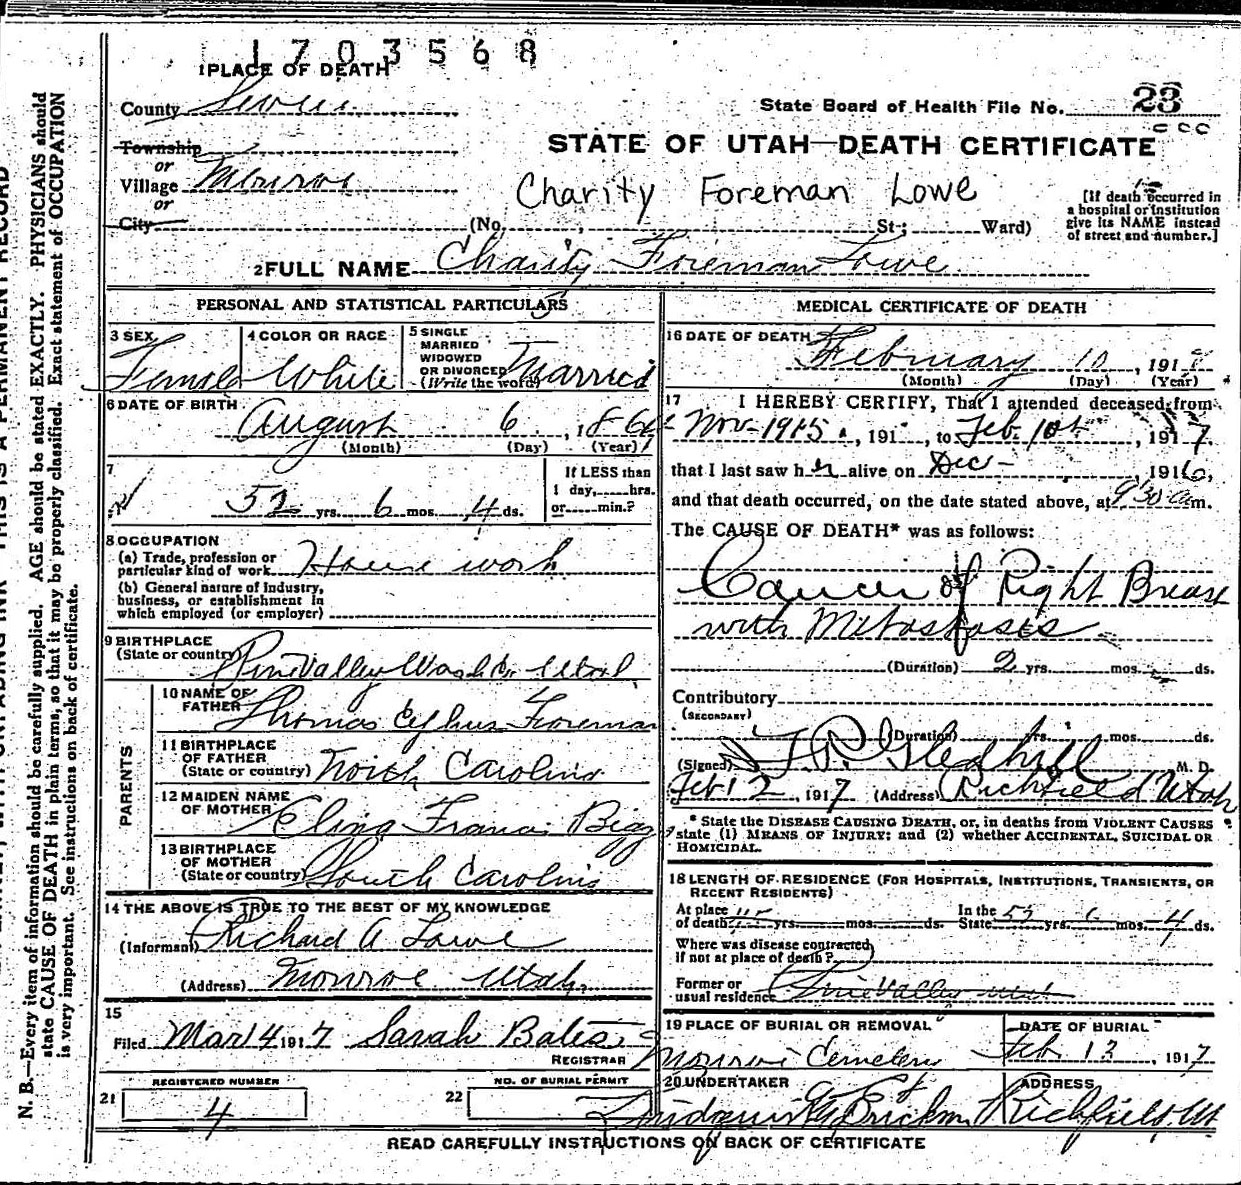 1703568
1 PLACE OF DEATH
County Sevier
State Board of Health File No. 23
Township
STATE OF UTAH—DEATH CERTIFICATE
or
Village Monroe
Charity Foreman Lowe
or
City (No. , St.; Ward)
[If death occurred in a hospital or institution give its NAME instead of street and number.]
2 FULL NAME Charity Foreman Lowe
PERSONAL AND STATISTICAL PARTICULARS
3 SEX Female
4 COLOR OR RACE White
5 SINGLE MARRIED WIDOWED OR DIVORCED (Write the word) Married
6 DATE OF BIRTH August 6, 186
(Month) (Day) (Year)
7
52 yrs. 6 mos. 4 ds.
If LESS than 1 day, hrs. or min.?
8 OCCUPATION
(a) Trade, profession or particular kind of work House work
(b) General nature of industry, business, or establishment in which employed (or employer)
9 BIRTHPLACE
(State or country) Pine Valley Wash Co Utah
PARENTS
10 NAME OF FATHER Thomas Foreman
11 BIRTHPLACE OF FATHER (State or country) North Carolina
12 MAIDEN NAME OF MOTHER Francis
13 BIRTHPLACE OF MOTHER (State or country) South Carolina
14 THE ABOVE IS TRUE TO THE BEST OF MY KNOWLEDGE
(Informant) Richard A Lowe
(Address) Monroe Utah.
15
Filed Mar 14 1917 Sarah Bates
REGISTRAR
REGISTERED NUMBER
21 4
NO. OF BURIAL PERMIT
22
MEDICAL CERTIFICATE OF DEATH
16 DATE OF DEATH February 10, 191
(Month) (Day) (Year)
17 I HEREBY CERTIFY, That I attended deceased from
Nov 1915, 191 , to Feb. 10th, 1917
that I last saw her alive on Dec - 1916,
and that death occurred, on the date stated above, at 9:30 a m.
The CAUSE OF DEATH* was as follows:
Cancer of Right Breast
with Metastasis
(Duration) 2 yrs. mos. ds.
Contributory
(SECONDARY)
(Duration) yrs. mos. ds.
(Signed) Gledhill M. D.
Feb 12, 1917 (Address) Richfield Utah
* State the DISEASE CAUSING DEATH, or, in deaths from VIOLENT CAUSES
state (1) MEANS OF INJURY; and (2) whether ACCIDENTAL, SUICIDAL OR
HOMICIDAL.
18 LENGTH OF RESIDENCE (FOR HOSPITALS, INSTITUTIONS, TRANSIENTS, OR
RECENT RESIDENTS)
At place of death yrs. mos. ds. In the State yrs. mos. 4 ds.
Where was disease contracted
if not at place of death?
Former or
usual residence Pine Valley Utah
19 PLACE OF BURIAL OR REMOVAL
Monroe Cemetery
DATE OF BURIAL
Feb 13, 1917
20 UNDERTAKER
ADDRESS
Richfield Ut
READ CAREFULLY INSTRUCTIONS ON BACK OF CERTIFICATE
N. B.—Every item of information should be carefully supplied. AGE should be stated EXACTLY. PHYSICIANS should
state CAUSE OF DEATH in plain terms, so that it may be properly classified. Exact statement of OCCUPATION
is very important. See instructions on back of certificate.